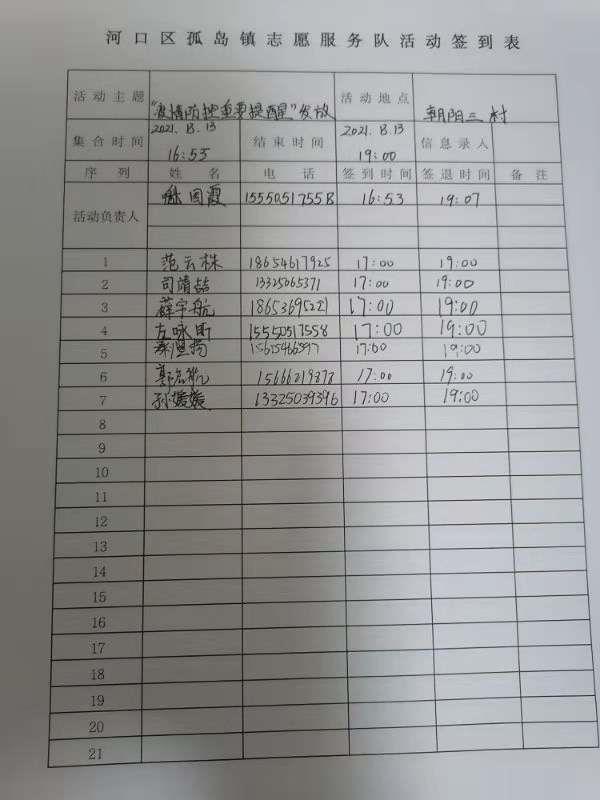 河口区孤岛镇志愿服务队活动签到表
活动主题 "疫情防控重要提醒"发放 活动地点 朝阳三村
集合时间 2021.8.13 16:55 结束时间 2021.8.13 19:00 信息录入
序列 姓名 电话 签到时间 签退时间 备注
活动负责人 国霞 16:53 19:07
1 范云株 18654617925 17:00 19:00
2 司靖喆 13325065371 17:00 19:00
3 薛宇航 17:00 19:00
4 左咏昕 15550517558 17:00 19:00
5 17:00 19:00
6 郭 17:00 19:00
7 孙媛媛 13325039396 17:00 19:00
8
9
10
11
12
13
14
15
16
17
18
19
20
21